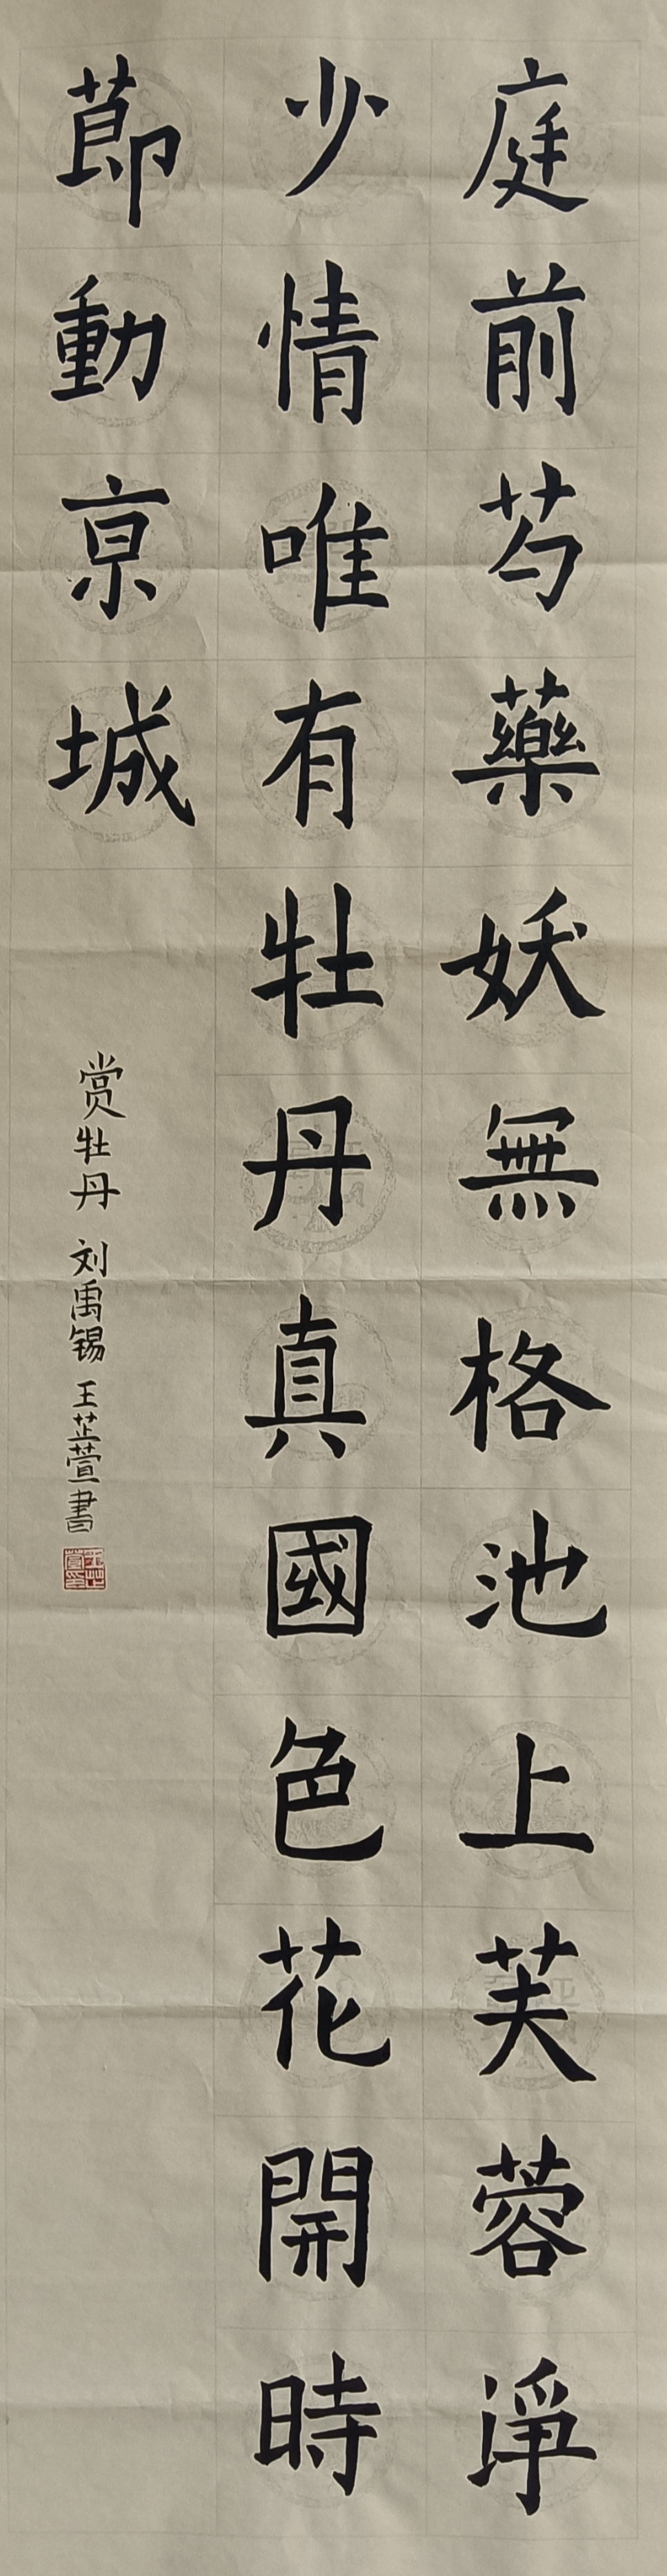 庭前芍藥妖無格池上芙蓉淨
少情唯有牡丹真國色花開時
節動京城
赏牡丹 刘禹锡 王芷萱書